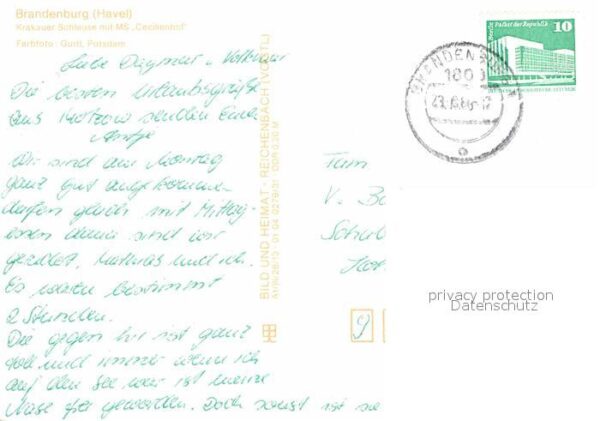 Brandenburg (Havel)
Krakauer Schleuse mit MS „Cecilienhof“
Farbfoto: Gurll, Potsdam
Liebe Dagmar u. Volkmar
Die besten Urlaubsgrüße
aus senden Euch
Antje
Wir sind am Montag
ganz gut angekommen
durften gleich mit Mittag
essen dann sind wir
gerudert, Matthias und ich.
Es waren bestimmt
2 Stunden.
Die gegen hir ist ganz
toll und immer wenn ich
auf den See war ist meine
Nase geworden. Doch sonst ist sie
BILD UND HEIMAT · REICHENBACH (VOGTL)
01 04 0279/31 DDR 0,20 M
Berlin, Palast der Republik
10
BRANDENBURG
1800
Fam
V. Ba
Schul
privacy protection
Datenschutz
9